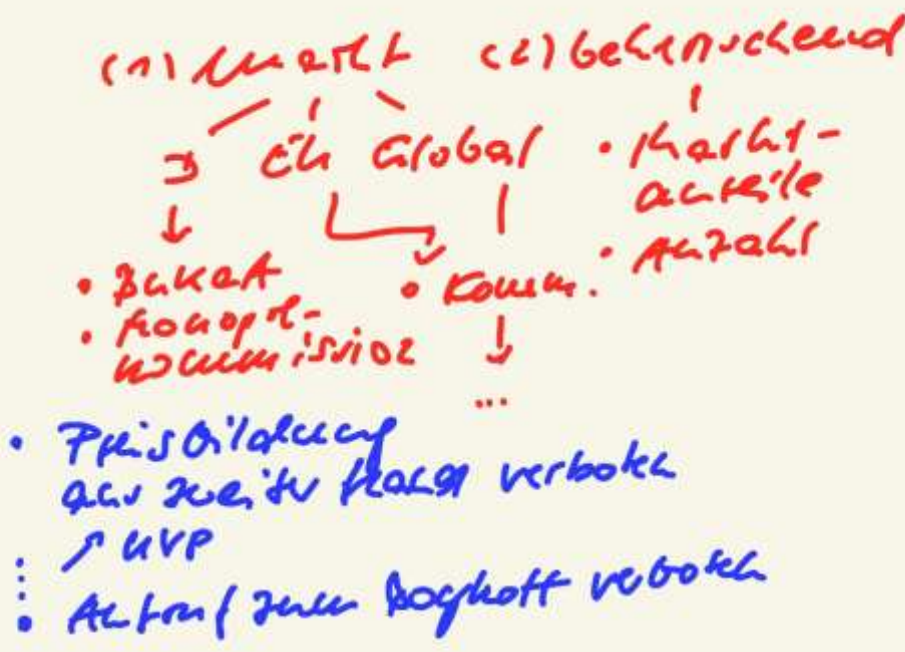 (1) Markt (2) beherrschend
D EU Global • Markt-
anteile
• BuKartA • Komm. • Anzahl
• Monopol-
kommission
...
• Preisbildung
aus zweiter Hand verboten
↗ UVP
• Aufruf zum Boykott verboten